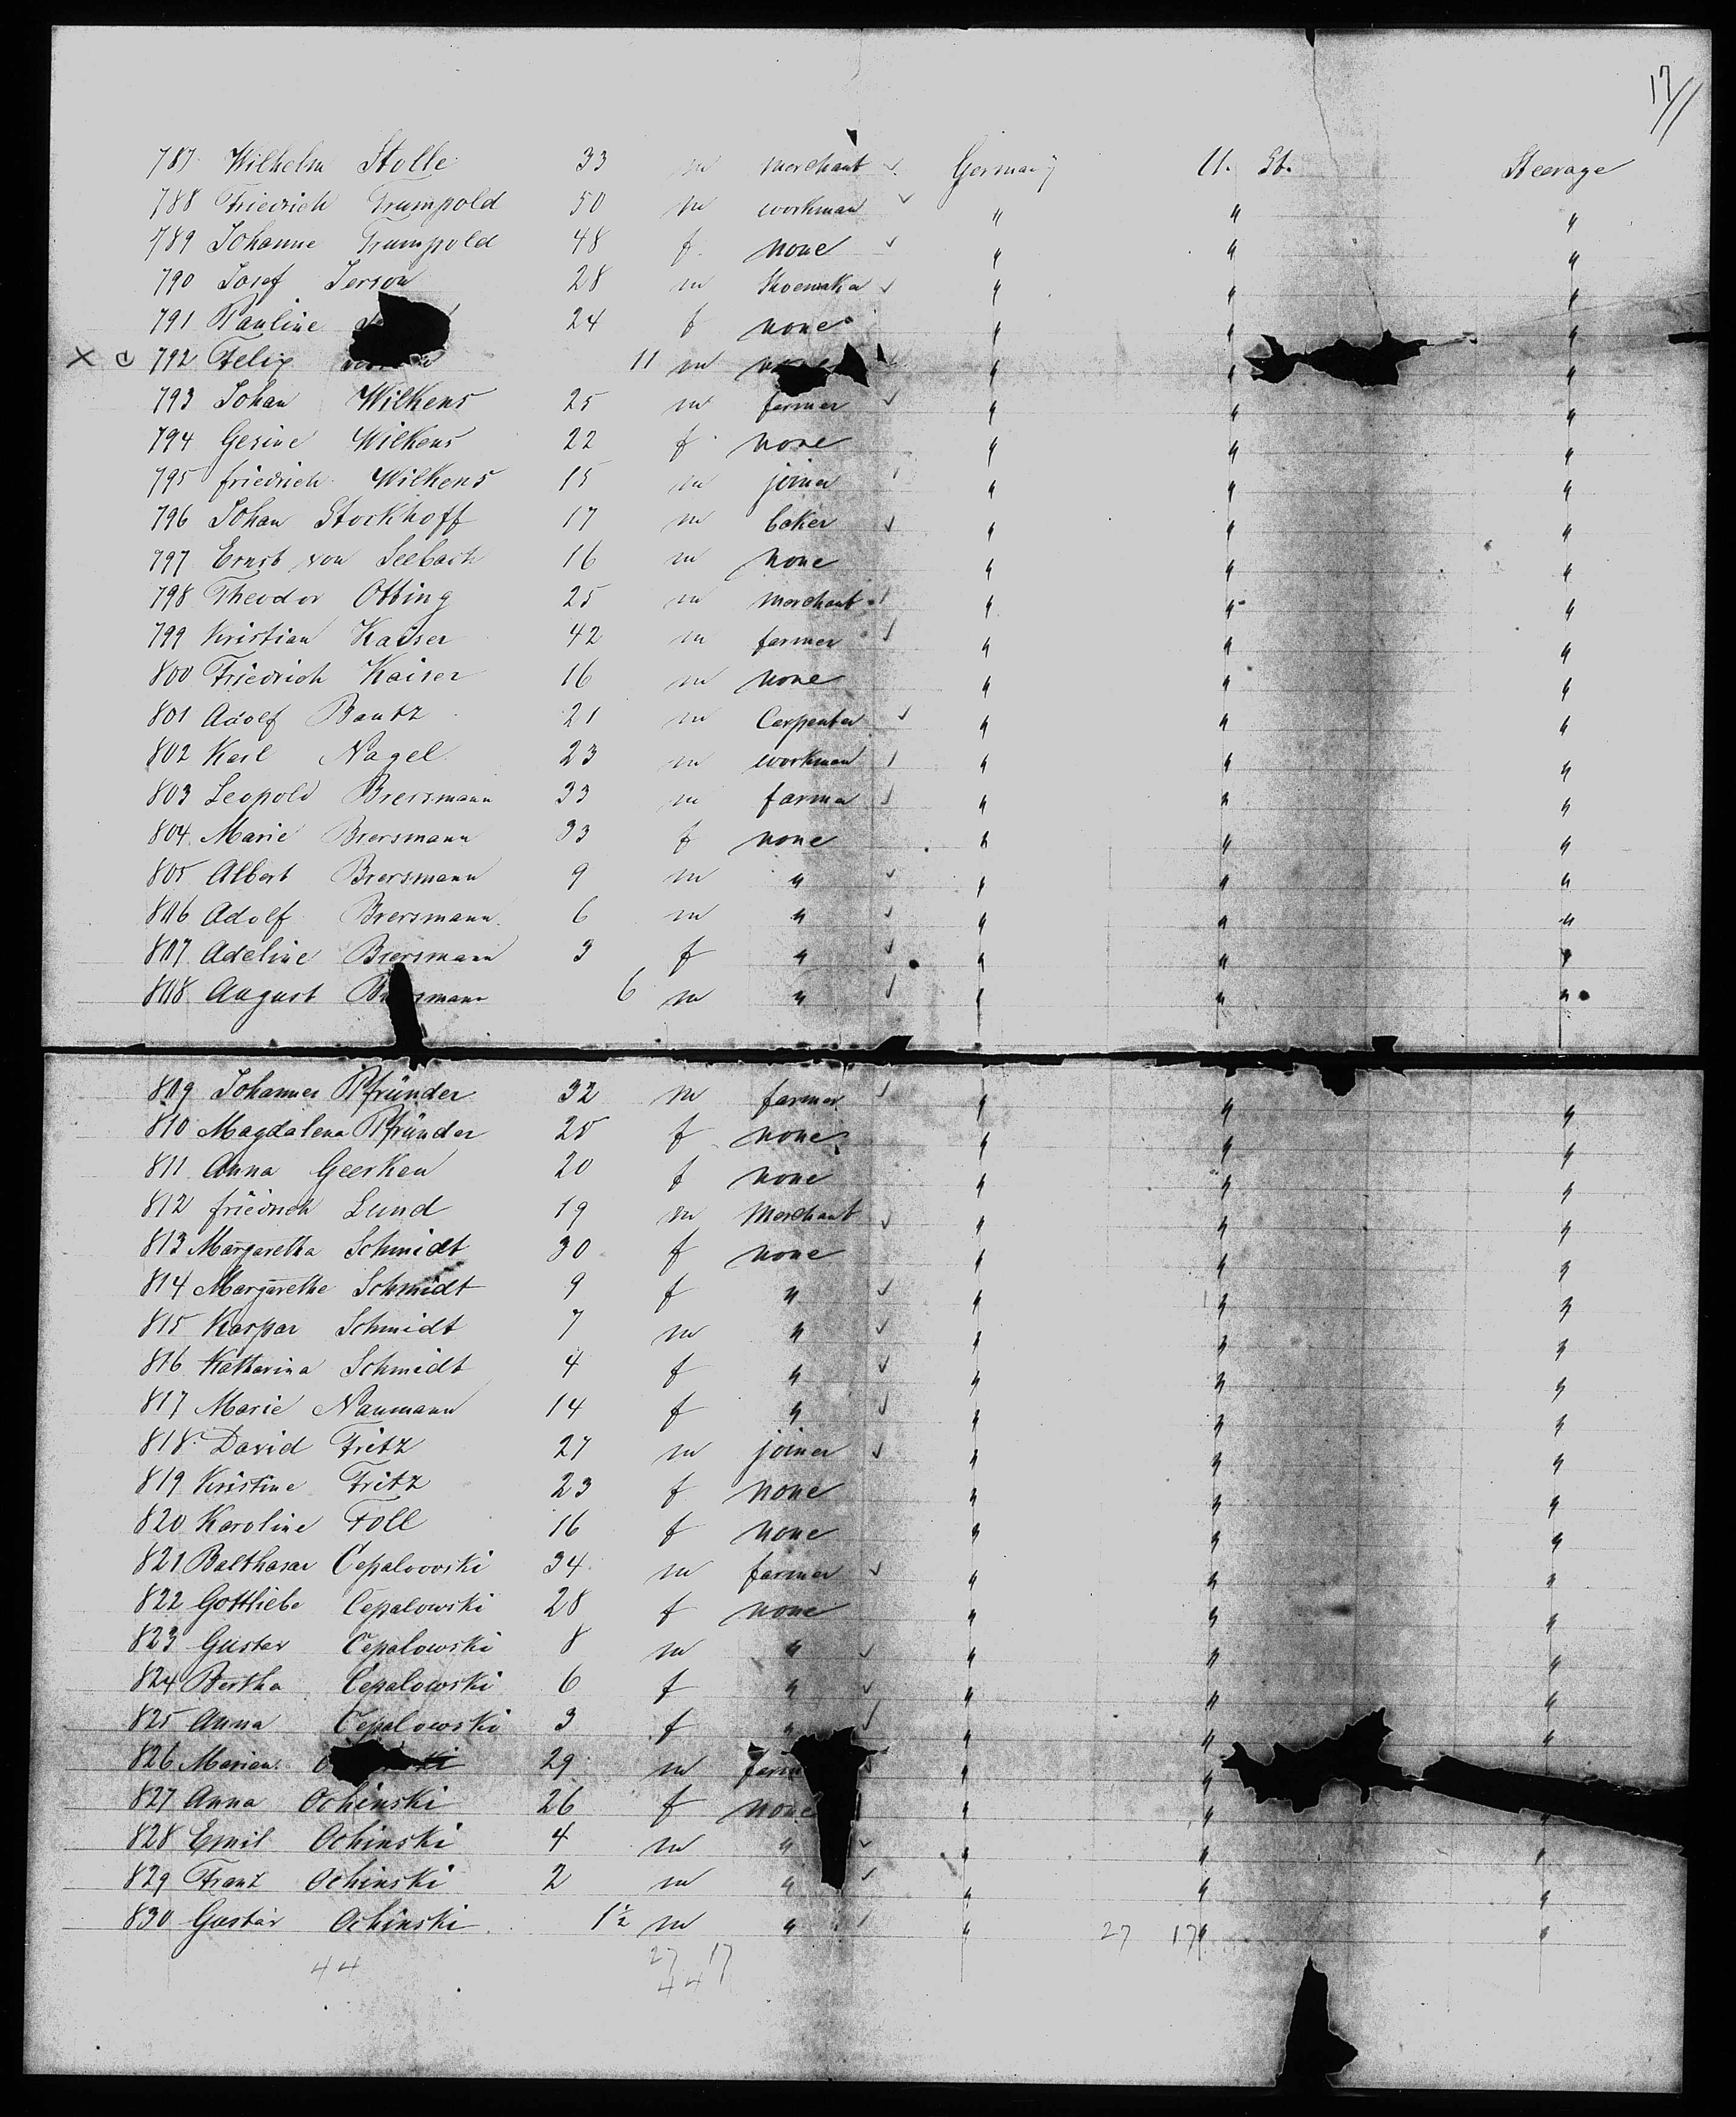 17/
787 Wilhelm Stolle 33 m merchant ✓ Germany U. St. Steerage
788 Friedrich Trumpold 50 m workman ✓ " " "
789 Johanne Trumpold 48 f. none ✓ " " "
790 Josef Jerson 28 m Shoemaker ✓ " " "
791 Pauline 24 f none " " "
X 792 Felix 11 m ✓ " " "
793 Johan Wilkens 25 m farmer ✓ " " "
794 Gesine Wilkens 22 f none " " "
795 friedrich Wilkens 15 m joiner ✓ " " "
796 Johan Stockhoff 17 m baker ✓ " " "
797 Ernst von Seebach 16 m none " " "
798 Theodor Otting 25 m merchant ✓ " " "
799 Kristian Kaiser 42 m farmer ✓ " " "
800 Friedrich Kaiser 16 m none " " "
801 Adolf Bautz 21 m Carpenter ✓ " " "
802 Karl Nagel 23 m workman ✓ " " "
803 Leopold Brersmann 33 m farmer ✓ " " "
804 Marie Brersmann 33 f none " " "
805 Albert Brersmann 9 m " ✓ " " "
806 Adolf Brersmann 6 m " ✓ " " "
807 Adeline Brersmann 3 f " ✓ " " "
808 August 6 m " ✓ " " "
809 Johannes Pfründer 32 m farmer ✓ " " "
810 Magdalena Pfründer 25 f none " " "
811 Anna Geerken 20 f none " " "
812 friedrich Lund 19 m Merchant ✓ " " "
813 Margaretha Schmidt 30 f none " " "
814 Margarethe Schmidt 9 f " ✓ " " "
815 Kaspar Schmidt 7 m " ✓ " " "
816 Katharina Schmidt 4 f " ✓ " " "
817 Marie Naumann 14 f " ✓ " " "
818 David Fritz 27 m joiner ✓ " " "
819 Kristine Fritz 23 f none " " "
820 Karoline Foll 16 f none " " "
821 Balthasar Cepalowski 34 m farmer ✓ " " "
822 Gottliebe Cepalowski 28 f none " " "
823 Gustav Cepalowski 8 m " ✓ " " "
824 Bertha Cepalowski 6 f " ✓ " " "
825 Anna Cepalowski 3 f " ✓ " " "
826 29 m ✓ " "
827 Anna Ochinski 26 f none " " "
828 Emil Ochinski 4 m " ✓ " " "
829 Franz Ochinski 2 m " ✓ " " "
830 Gustav Ochinski 1½ m " ✓ " 27 17 " "
44 27 17
44